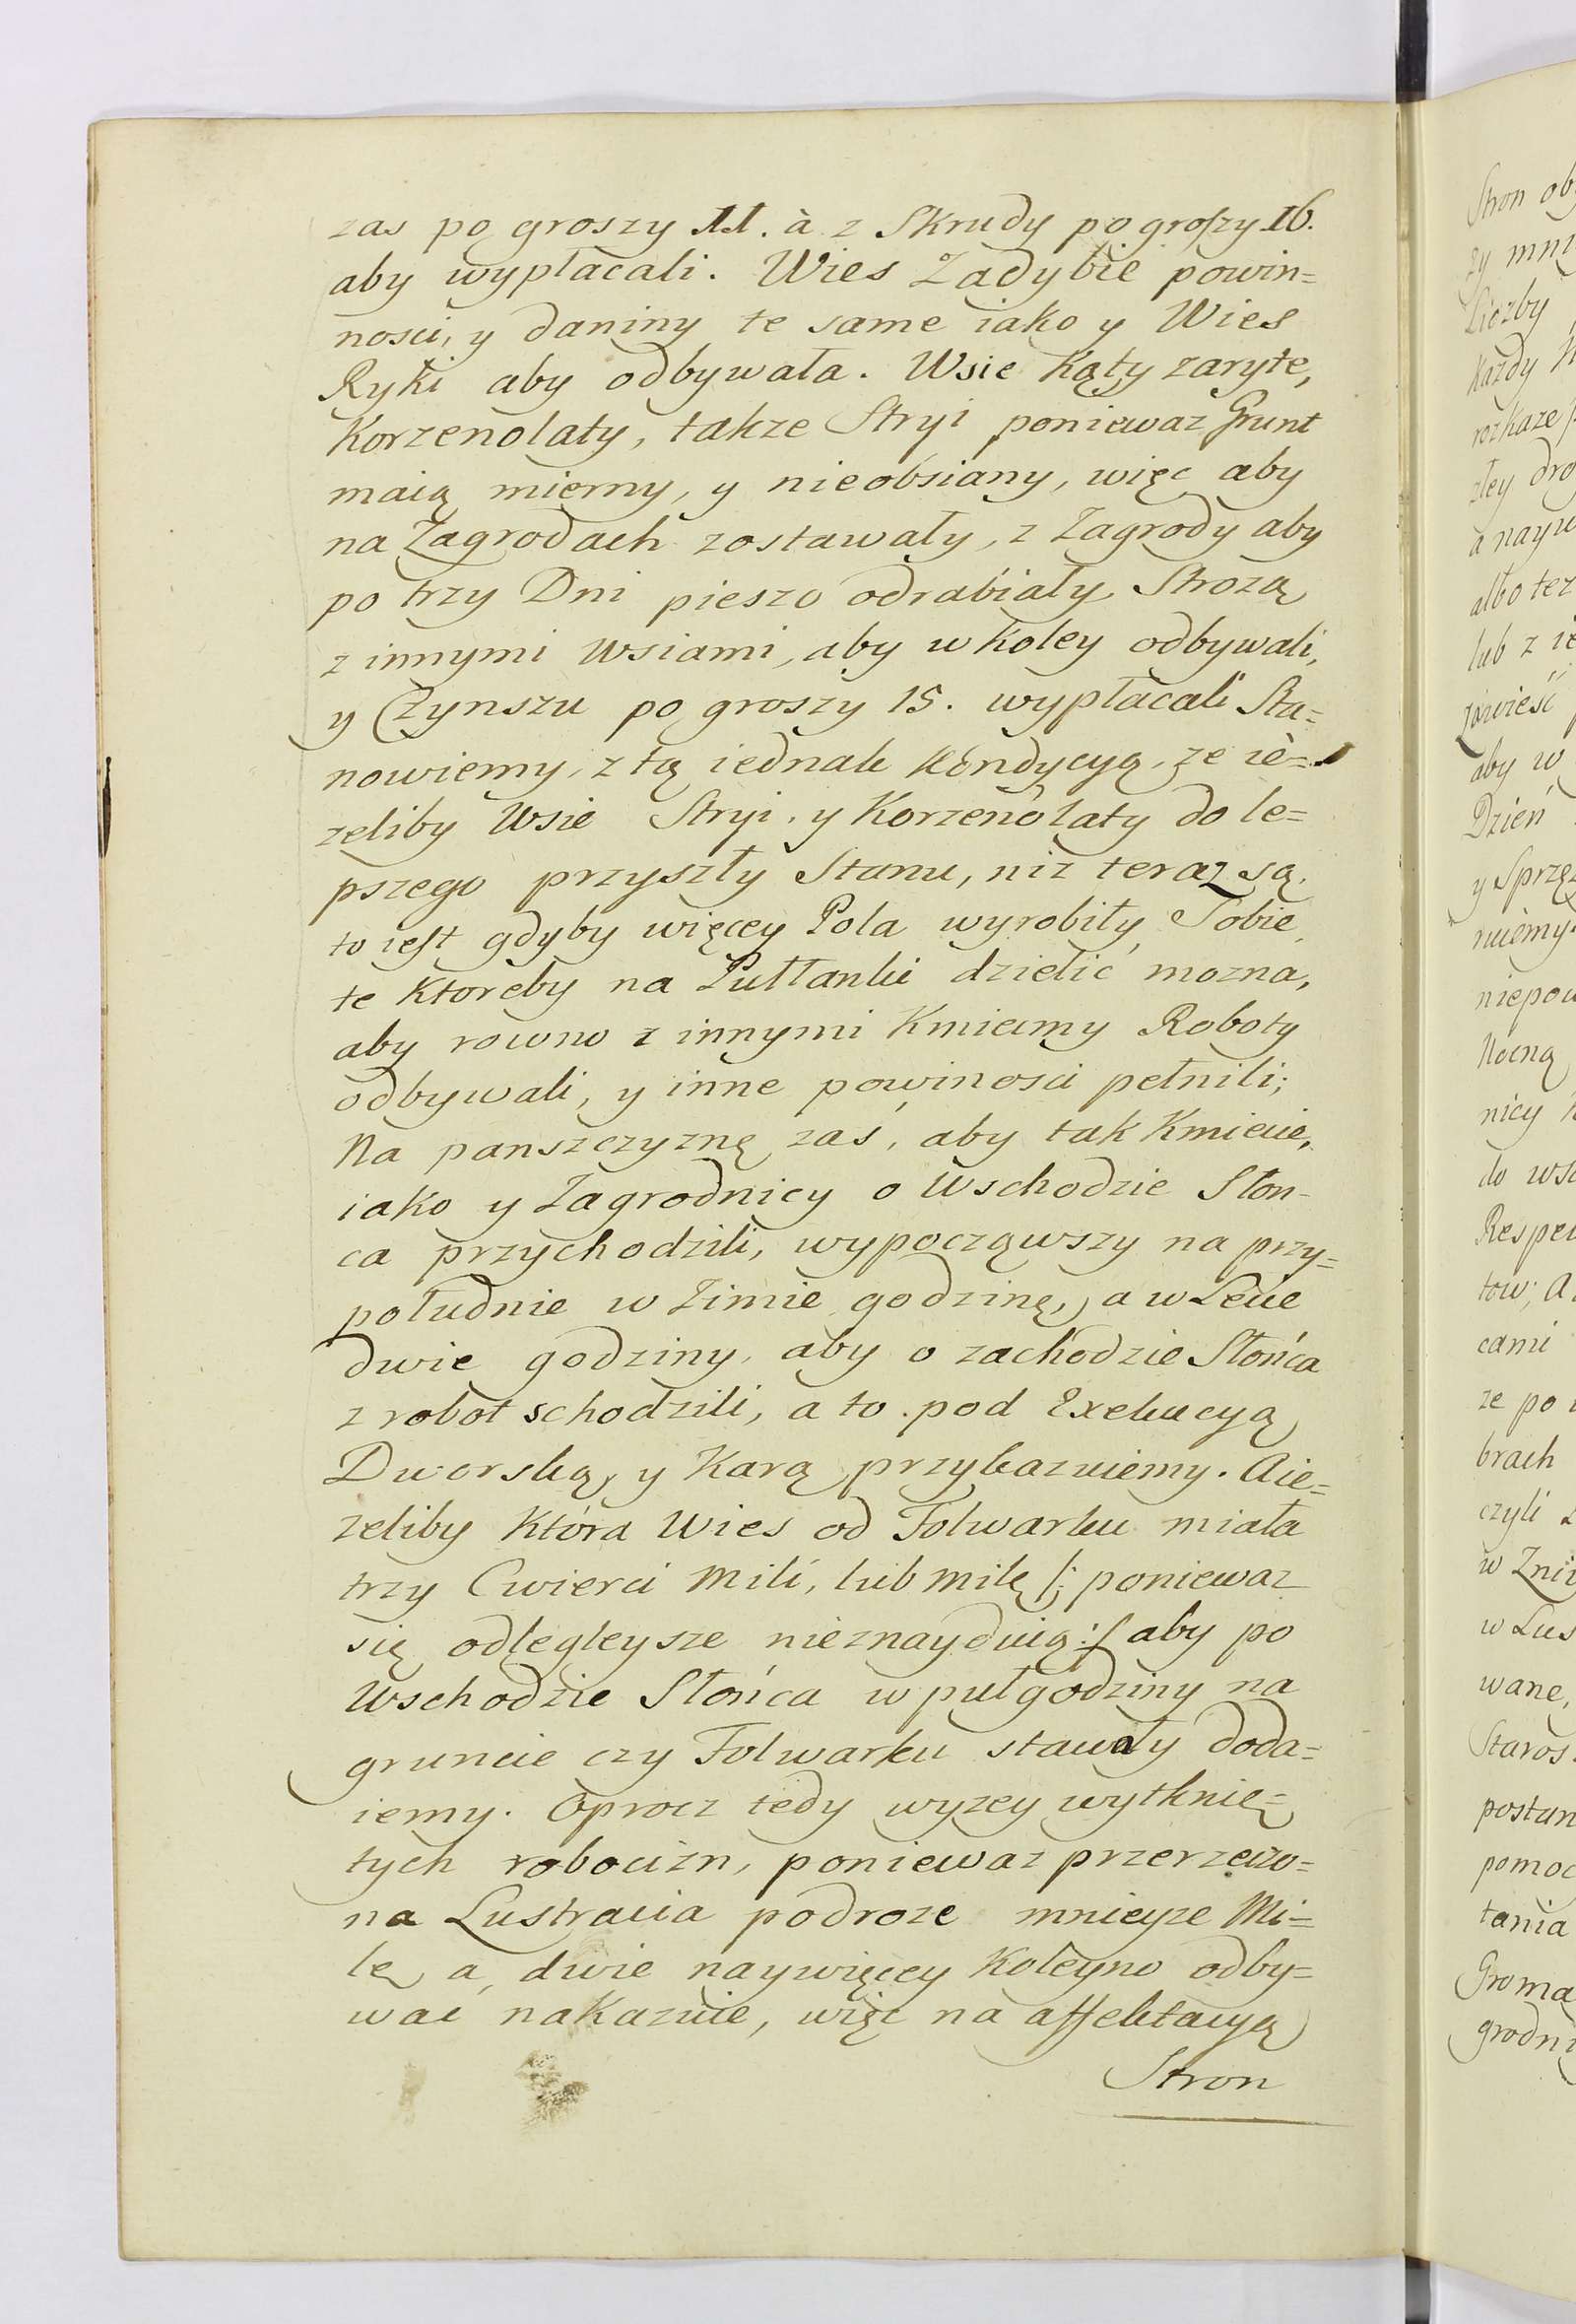 zas po groszy 11. à z Skrudy po groszy 16.
aby wypłacali. Wies Zadybie powin=
nosci, y daniny te same iako y Wies
Ryki aby odbywała. Wsie Kąty zaryte,
Korzenolaty, takze Stryi poniewaz Grunt
maią mierny, y nieobsiany, więc aby
na Zagrodach zostawały, z Zagrody aby
po trzy Dni pieszo odrabiały, Strozą
z innymi Wsiami, aby w koley odbywali,
y Czynszu po groszy 15. wypłacali Sta=
nowiemy, z tą iednak kondycyą, ze ie=
zeliby Wsie Stryi, y Korzenolaty do le=
pszego przyszły Stanu, niz teraz są,
to iest gdyby więcey Pola wyrobiły Sobie
te ktoreby na Pułłanki dzielić mozna,
aby rowno z innymi Kmiecmy Roboty
odbywali, y inne powinosci pełnili;
Na panszczyznę zaś, aby tak Kmiecie,
iako y Zagrodnicy o Wschodzie Słon-
ca przychodzili, wypocząwszy na przy=
południe w Zimie godzinę, a w Lecie
dwie godziny, aby o zachodzie Słońca
z robot schodzili, a to pod Exekucyą
Dworską, y Karą przykazuiemy. Aie=
zeliby która Wies od Folwarku miała
trzy Cwierci Mili, lub milę /: poniewaz
się odlegleysze nieznayduią :/ aby po
Wschodzie Słońca w pułgodziny na
gruncie czy Folwarku stawały doda=
iemy. Oprocz tedy wyzey wytknię=
tych robocizn, poniewaz przerzeczo=
na Lustracia podroze mnieysze Mi=
lę a dwie naywięcey Koleyno odby=
wać nakazuie, więc na affektacyą
Stron
Stron
zy
Liczby
Każdy
rozkaze
złey
a
albo tez
lub z
aby w
Dzień
y
niepow
Nocną
nicy
do
tow;
cami
ze po
brach
czyli
w
w Lus
wane,
Staros
postan
pomoc
tania
Groma
grodni